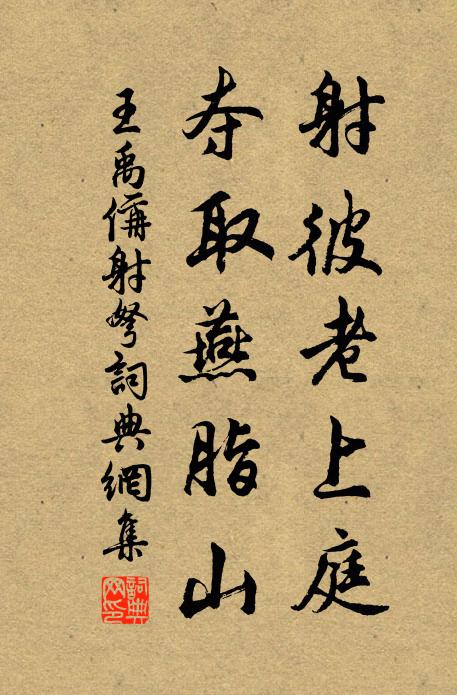 射彼老上庭
夺取燕脂山
王禹偁射弩詞典網集
詞典网印